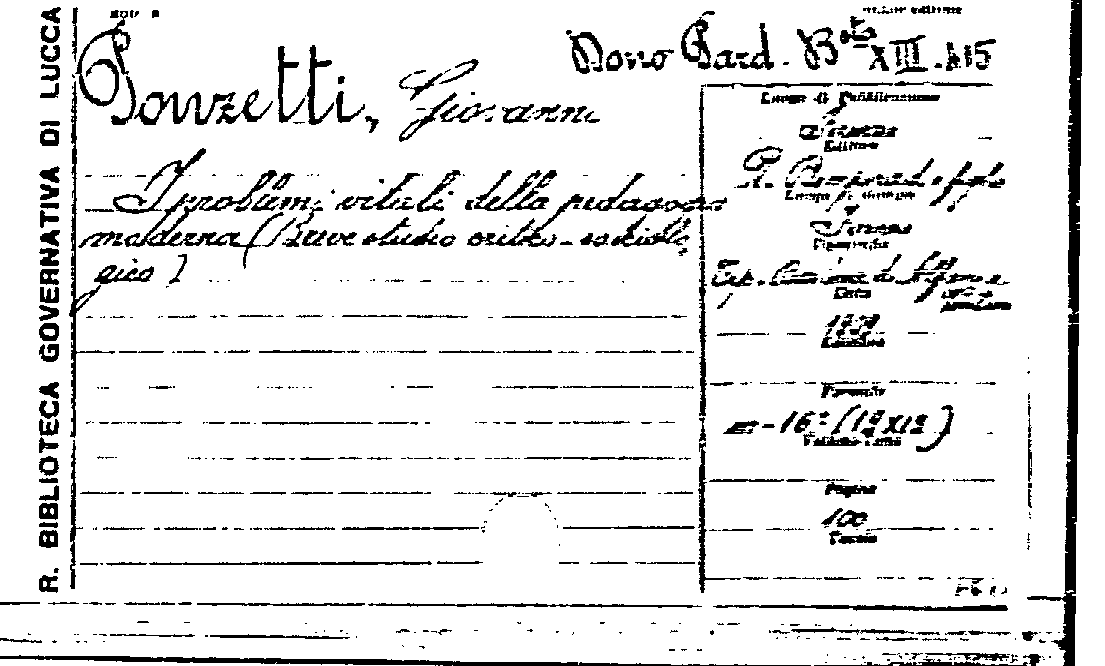 R. BIBLIOTECA GOVERNATIVA DI LUCCA
Dono Pard. Bta XIII. 415
Ponzetti, Giovanni
I problemi vitali della pedagogia
moderna (Breve studio critico-sociolo
gico)
Luogo di Pubblicazione
Firenze
Editore
R. Bemporad e figlio
Luogo di stampa
Firenze
Tipografia
Tip.
Data
Edizione
Formato
in-16° (19x12)
Pagine
100
Tavole